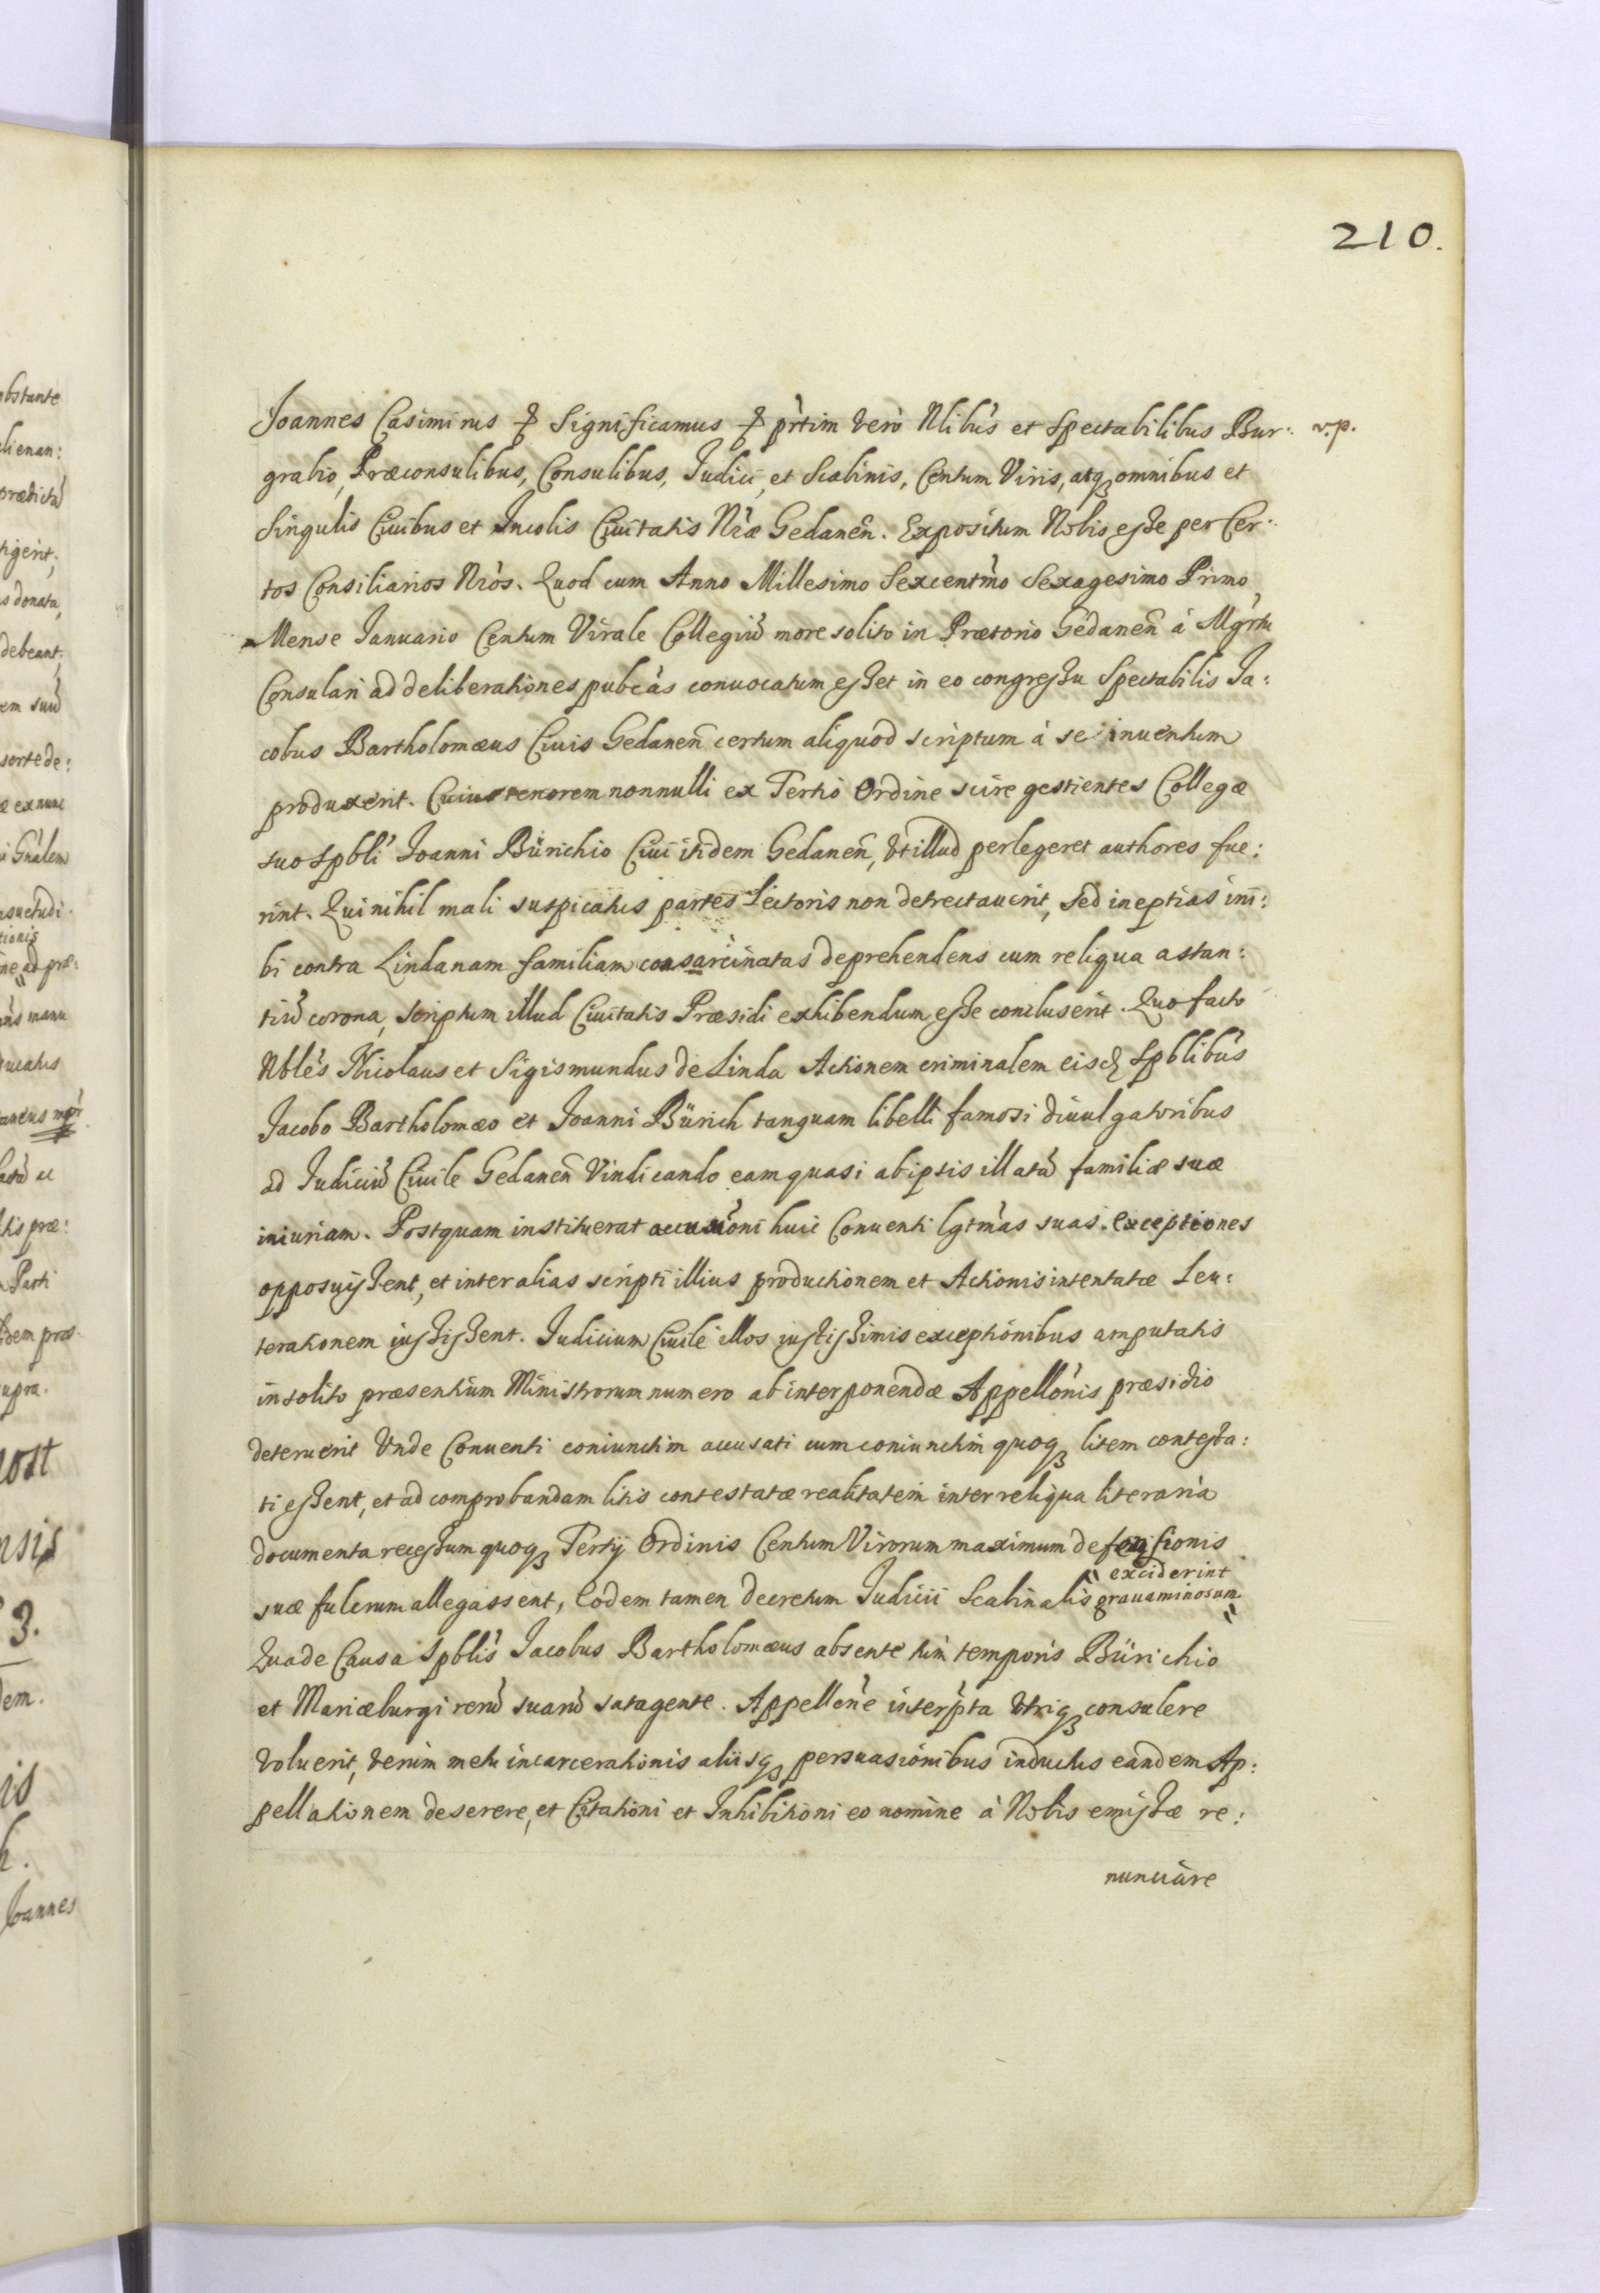 210.
Joannes Casimirus & Significamus & prtim vero Nlibus et Spectabilibus Bur: v.p.
grabio, Præconsulibus, Consulibus, Judici, et Scabinis, Centum Viris, atq omnibus et
singulis Civibus et Incolis Civitatis Nræ Gedanen. Expositum Nobis esse per Cer:
tos Consiliarios Nros. Quod cum Anno Millesimo Sexcentmo Sexagesimo Primo,
Mense Januario Centum Virale Collegiu more solito in Prætorio Gedanen à Mgrtu
Consulari ad deliberationes pubcas convocatum esset in eo congressu Spectabilis Ja:
cobus Bartholomæus Civis Gedanen certum aliquod scriptum à se inventum
produxerit. Cuius tenorem nonnulli ex Tertio Ordine scire gestientes Collegæ
suo Spbli Joanni Bürichio Civi itidem Gedanen, vt illud perlegeret authores fue:
rint. Qui nihil mali suspicatus partes Lectoris non detrectaverit, sed ineptias ini:
bi contra Lindanam familiam consarcinatas deprehendens cum reliqua astan:
tiu corona, scriptum illud Civitatis Præsidi exhibendum esse concluserit. Quo facto
Nbles Nicolaus et Sigismundus de Linda Actionem criminalem eisd Spblibus
Jacobo Bartholomæo et Joanni Bürich tanquam libelli famosi divulgatoribus
ad Judiciu Civile Gedanen vindicando eam quasi ab ipsis illatu familiæ suæ
iniuriam. Postquam instituerat accusioni huic Conventi lgtmas suas exceptiones
opposuissent, et inter alias scripti illius productionem et Actionis intentatæ Leu:
terationem iussissent. Judicium Civile illos iustissimis exceptionibus amputatis
insolito præsentium Ministrorum numero ab interponendæ Appellonis præsidio
deteruerit Vnde Conventi coniunctim accusati cum coniunctim quoq litem contesta:
ti essent, et ad comprobandam litis contestatæ realitatem inter reliqua literaria
documenta recessum quoq Tertij Ordinis Centum Virorum maximum defensionis
exciderint
suæ fulcrum allegassent, Eodem tamen decretum Judicii Scabinalis gravaminosum
Qua de Causa Spblis Jacobus Bartholomæus absente tum temporis Bürichio
et Mariæburgi reru suaru satagente. Appellone interpta vtriq consulere
voluerit, verum metu incarcerationis aliisq persuasionibus inductus eandem Ap:
pellationem deserere, et Citationi et Inhibitioni eo nomine à Nobis emissæ re:
nunciare
obstante
lienan:
prædictà
tigerit,
s donata,
debeant,
em suu
sorte de:
æ ex nunc
Gnalem
suetudi
tionis
ne ad præ:
manu
atu ac
tis præ:
Parti
dem præ
upra.
post
nsis
3.
dem.
is
h.
Joannes